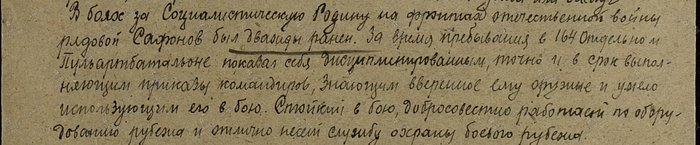 В боях за Социалистическую Родину на фронтах отечественной войны
рядовой Сафонов был дважды ранен. За время пребывания в 164 Отдельном
Пульартбатальоне показал себя дисциплинированным, точно и в срок выпол-
няющим приказы командиров, знающим вверенное ему оружие и умело
использующим его в бою. Стойкий в бою, добросовестно работает по обору-
дованию рубежа и отлично несет службу охраны боевого рубежа.